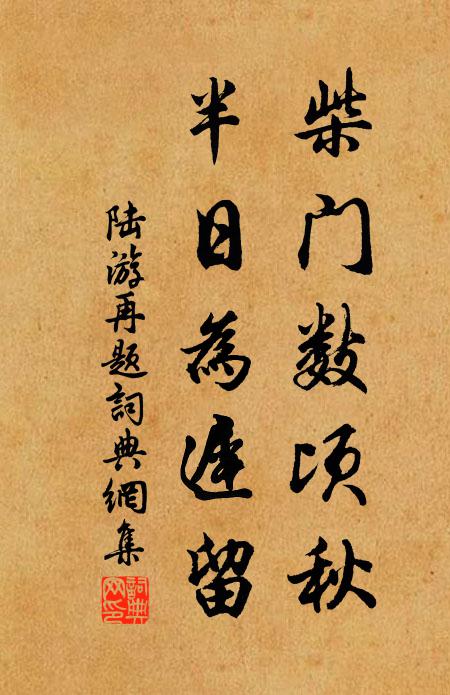 柴门数顷秋
半日为遅留
陆游再题词典網集
詞典网印